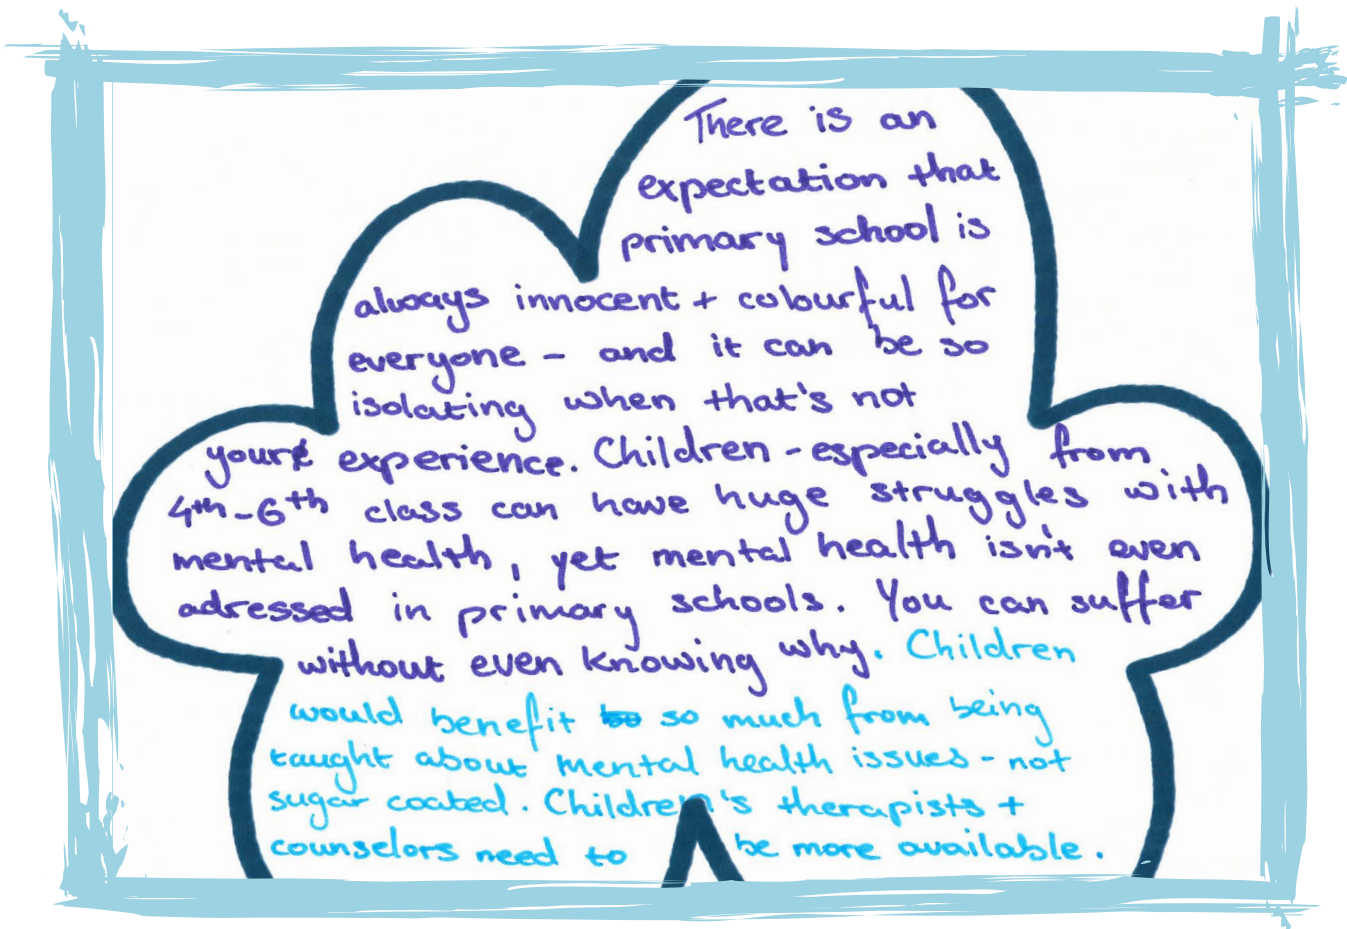 There is an
expectation that
primary school is
always innocent + colourful for
everyone - and it can be so
isolating when that's not
your experience. Children - especially from
4th-6th class can have huge struggles with
mental health, yet mental health isn't even
adressed in primary schools. You can suffer
without even knowing why. Children
would benefit so much from being
taught about mental health issues - not
sugar coated. Children's therapists +
counselors need to be more available.